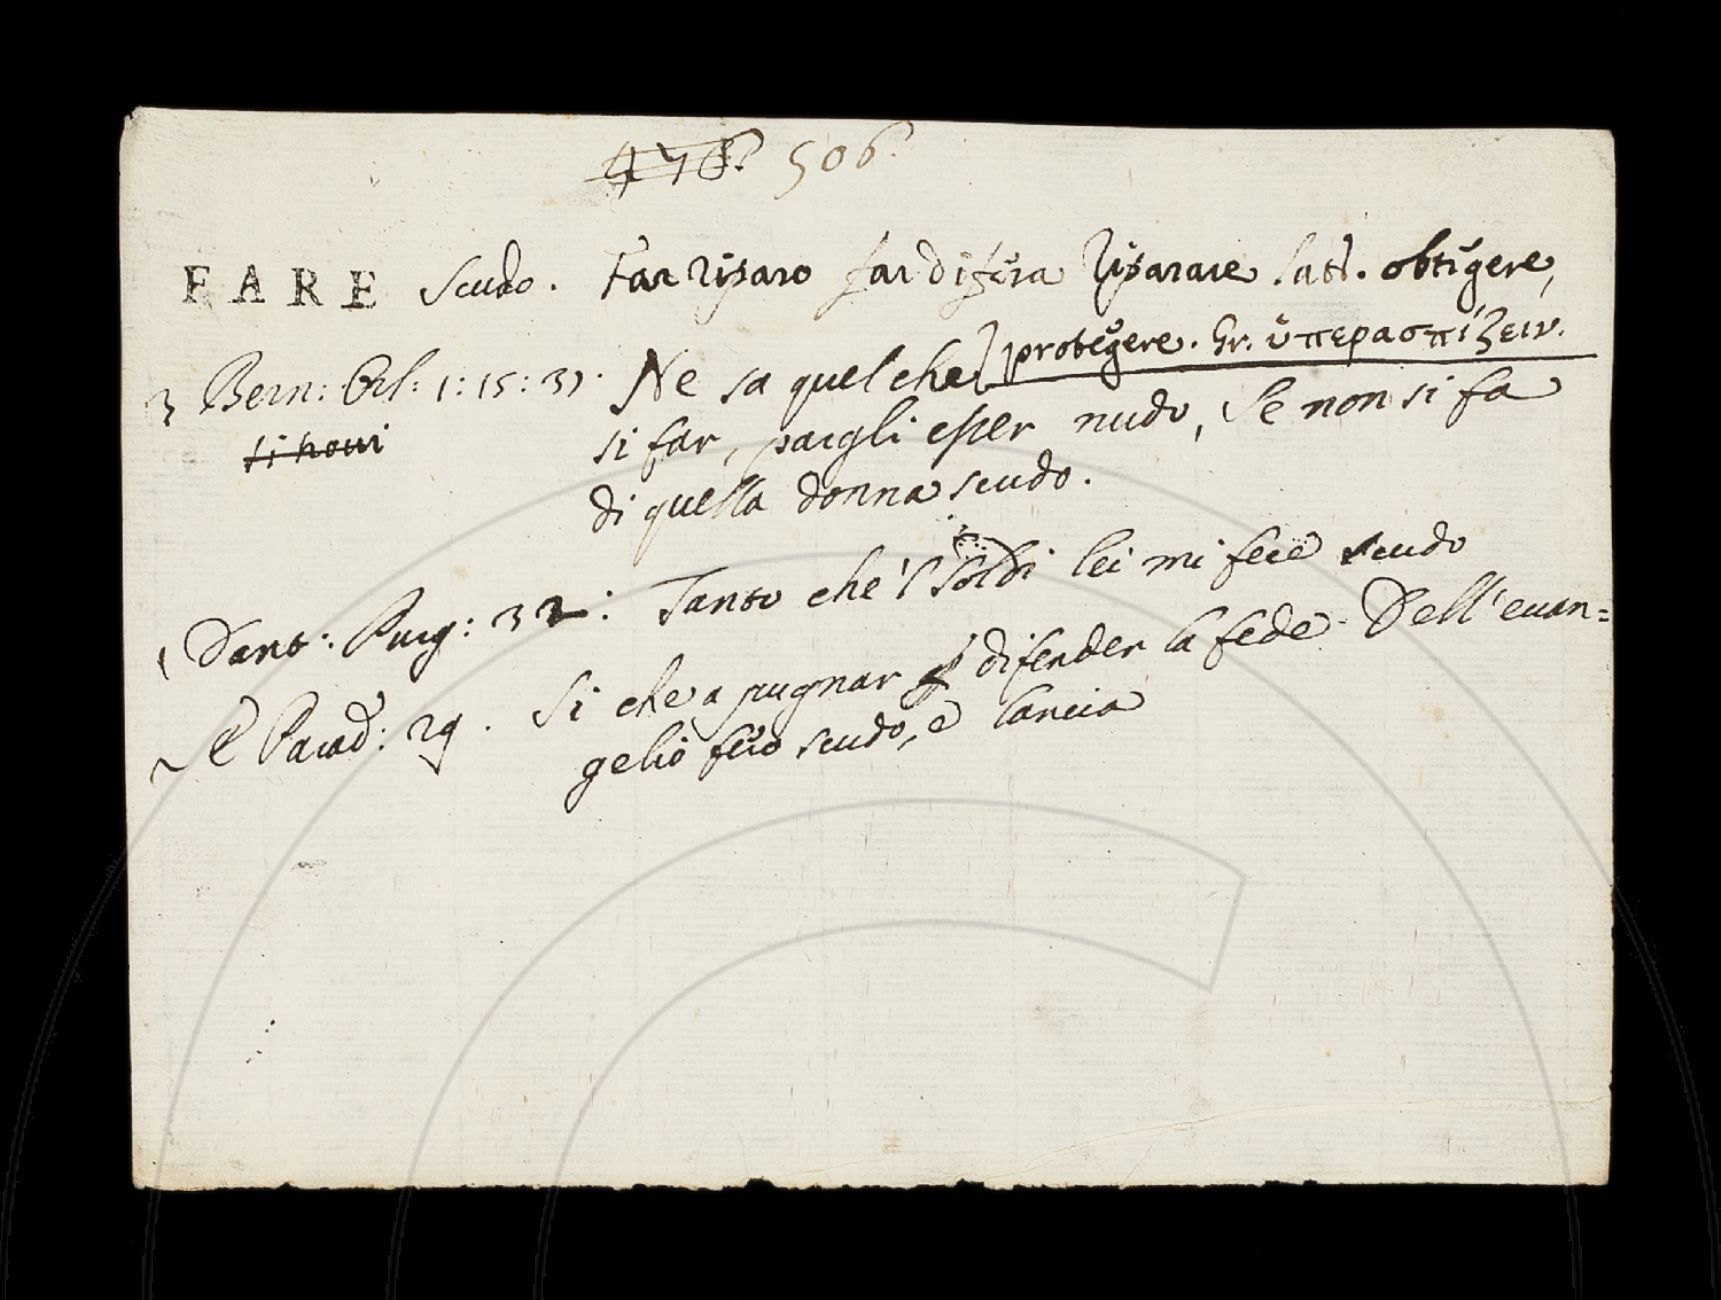 476. 506.
FARE scudo. Far riparo far difesa Riparare Latt. obtegere,
protegere. Gr. ὑπερασπίζειν.
3 Bern: Orl: 1:15:31. Ne sa quel che
si far, pargli esser nudo, Se non si fa
si trovi
di quella donna scudo.
1 Dant: Purg: 32: Tanto che 'l Sol di lei mi fece scudo
E Parad: 29. Si che a pugnar p difender la fede Dell'evan=
gelio fero scudo, e lancia